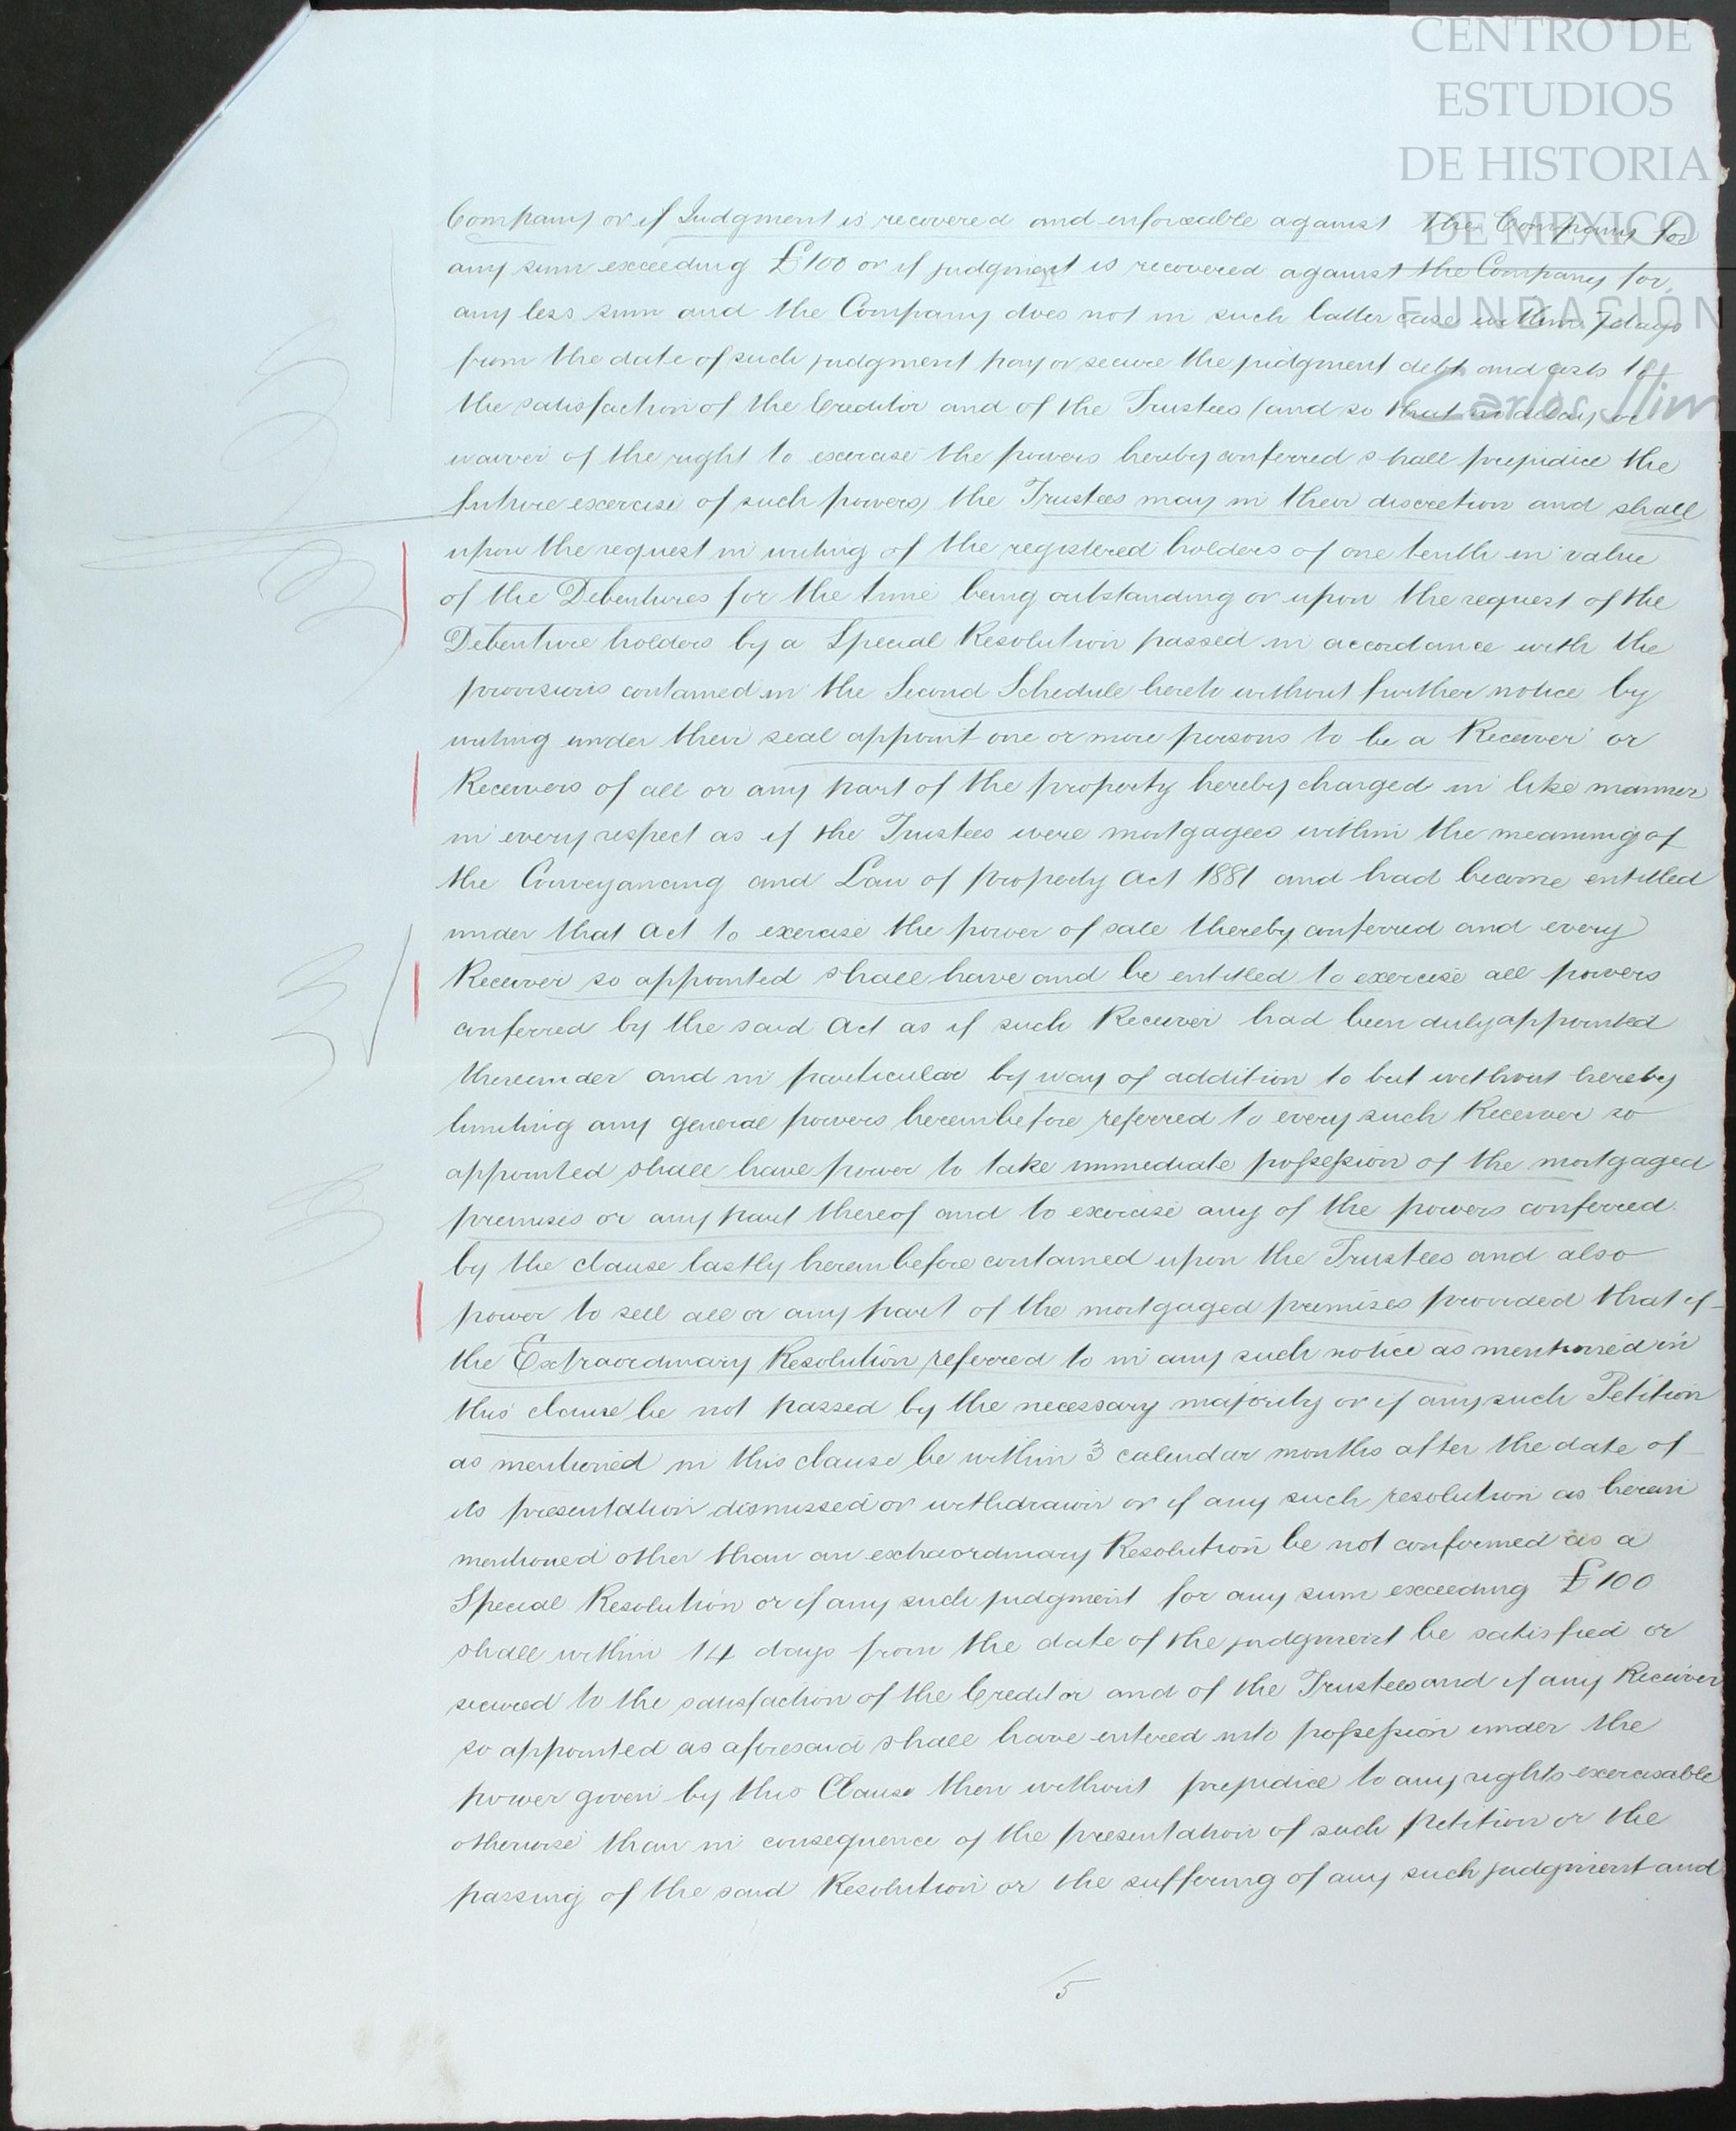 CENTRO DE
ESTUDIOS
DE HISTORIA
DE MEXICO
FUNDACIÓN
Carlos Slim
Company or if Judgment is recovered and enforceable against the Company for
any sum exceeding £100 or if judgment is recovered against the Company for
any less sum and the Company does not in such latter case within 7 days
from the date of such judgment pay or secure the judgment debt and costs to
the satisfaction of the Creditor and of the Trustees (and so that no delay or
waiver of the right to exercise the powers hereby conferred shall prejudice the
future exercise of such powers) the Trustees may in their discretion and shall
upon the request in writing of the registered holders of one tenth in value
of the Debentures for the time being outstanding or upon the request of the
Debenture holders by a Special Resolution passed in accordance with the
provisions contained in the Second Schedule hereto without further notice by
writing under their seal appoint one or more persons to be a Receiver or
Receivers of all or any part of the property hereby charged in like manner
in every respect as if the Trustees were mortgagees within the meaning of
the Conveyancing and Law of property Act 1881 and had become entitled
under that Act to exercise the power of sale thereby conferred and every
Receiver so appointed shall have and be entitled to exercise all powers
conferred by the said Act as if such Receiver had been duly appointed
thereunder and in particular by way of addition to but without hereby
limiting any general powers hereinbefore referred to every such Receiver so
appointed shall have power to take immediate possession of the mortgaged
premises or any part thereof and to exercise any of the powers conferred
by the clause lastly hereinbefore contained upon the Trustees and also
power to sell all or any part of the mortgaged premises provided that if
the Extraordinary Resolution referred to in any such notice as mentioned in
this clause be not passed by the necessary majority or if any such Petition
as mentioned in this clause be within 3 calendar months after the date of
its presentation dismissed or withdrawn or if any such resolution as herein
mentioned other than an extraordinary Resolution be not confirmed as a
Special Resolution or if any such judgment for any sum exceeding £100
shall within 14 days from the date of the judgment be satisfied or
secured to the satisfaction of the Creditor and of the Trustees and if any Receiver
so appointed as aforesaid shall have entered into possession under the
power given by this Clause then without prejudice to any rights exercisable
otherwise than in consequence of the presentation of such petition or the
passing of the said Resolution or the suffering of any such judgment and
5